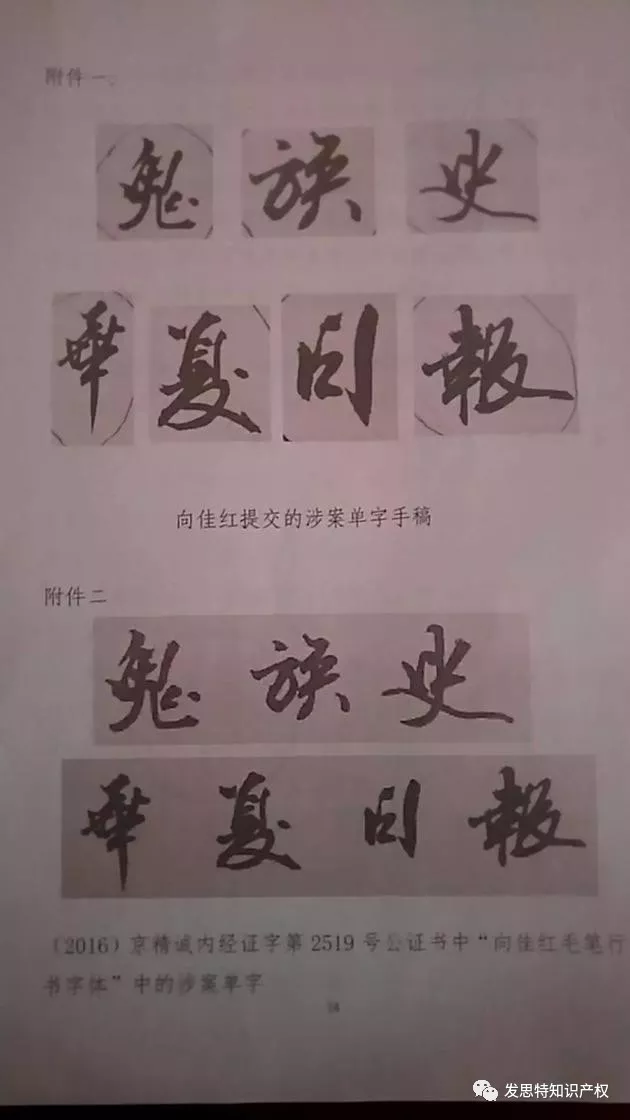 附件一：
鬼族史
華夏日報
向佳红提交的涉案单字手稿
附件二
鬼族史
華夏日報
（2016）京精诚内经证字第 2519 号公证书中“向佳红毛笔行
书字体”中的涉案单字
发思特知识产权